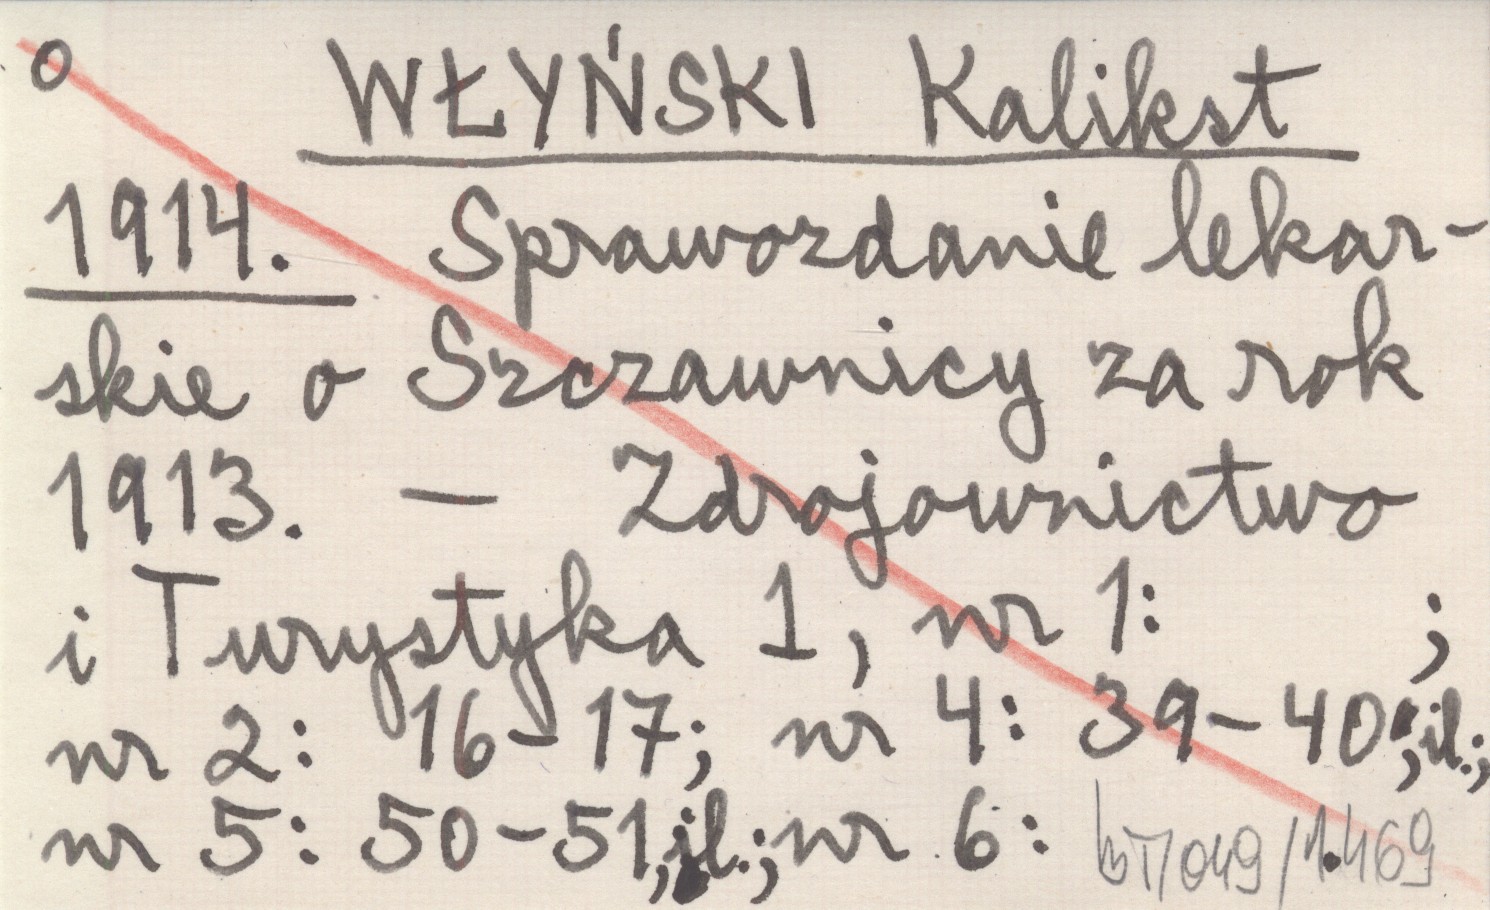 o WŁYŃSKI Kalikst
1914. Sprawozdanie lekar-
skie o Szczawnicy za rok
1913. — Zdrojownictwo
i Turystyka 1, nr 1: ;
nr 2: 16-17; nr 4: 39-40, il.;
nr 5: 50-51, il.; nr 6:
/049/1.469